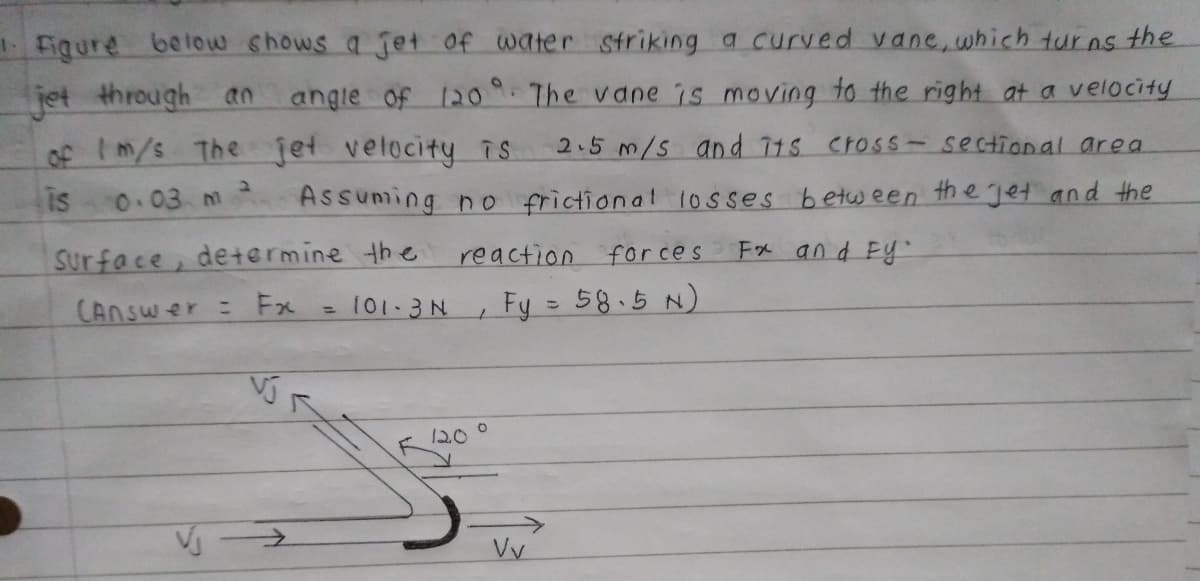 1. Figure below shows a jet of water striking a curved vane, which turns the
jet through an angle of 120°. The vane is moving to the right at a velocity
of 1 m/s The jet velocity is 2.5 m/s and its cross-sectional area
is 0.03 m² Assuming no frictional losses between the jet and the
surface, determine the reaction forces Fx and Fy.
(Answer = Fx = 101.3 N , Fy = 58.5 N)
Vj
120°
Vj
Vv